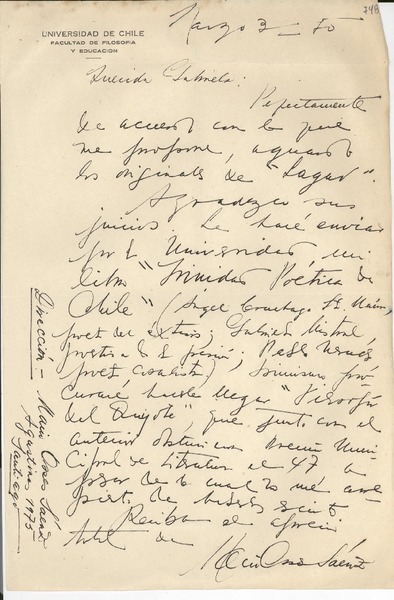 748
UNIVERSIDAD DE CHILE
FACULTAD DE FILOSOFIA
Y EDUCACION
Marzo 3 - 50
Querida Gabriela:
Perfectamente
de acuerdo con lo que
me propone, aguardo
los originales de "Lagar".
Agradezco sus
juicios. Le haré enviar
por la Universidad mi
libro "Trinidad Poética de
Chile" (Angel Cruchaga St. María,
poeta del extasis; Gabriela Mistral,
Pablo Neruda
poeta cosalista),
curaré hacerle llegar "Filosofía
del Quijote" que junto con el
anterior obtuvieron Premio Muni
cipal de Literatura el 47 a
pesar de lo cual no me
Reciba el aprecio
total de
Mario Osses Sáenz
Dirección - Mario Osses Sáenz
Agustinas 1975
Santiago